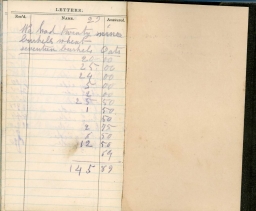 LETTERS.
Rec'd. NAME. Answered.
We had twenty nine
bushels wheat
seventeen bushels Oats
25 00
24 00
5 00
2 00
23 50
1 50
50
2 85
12 50
69
145 89